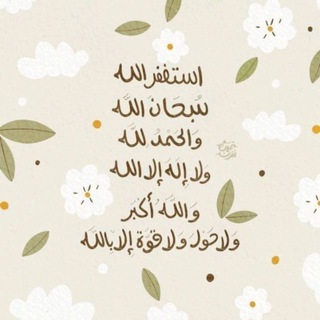 استغفر الله
سُبحَانَ اللَّه
وَالحَمْدُ للَّه
وَلا إلَه إلا اللَّه
وَاللَّه أَكبَر
وَلا حَوْلَ وَلا قوَّة إلا باللَّه